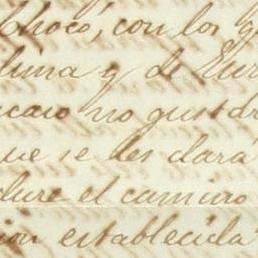 Chocó, con los
luna y de
no gustar
que se les dará
dure el camino
ion establecida